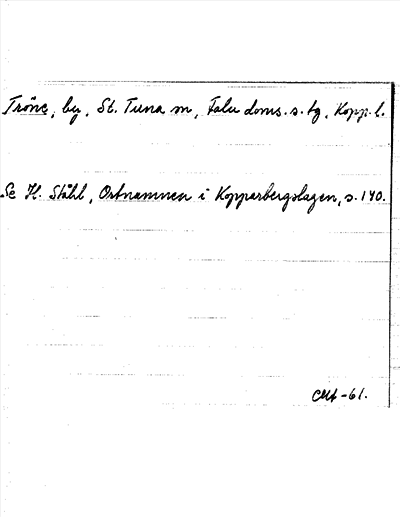 Tröne, by, St. Tuna sn, Falu doms. s. tg, Kopp. l.
Se H. Ståhl, Ortnamnen i Kopparbergslagen, s. 140.
-61.